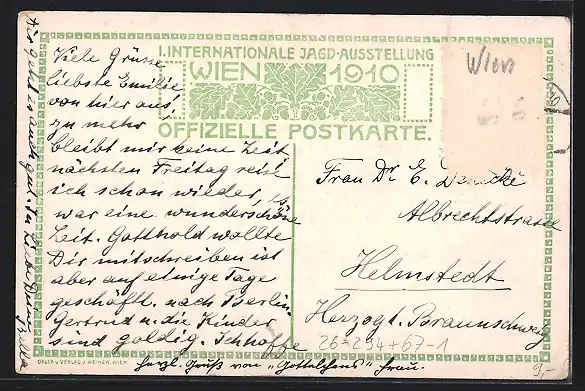 I. INTERNATIONALE JAGD-AUSSTELLUNG
WIEN 1910
OFFIZIELLE POSTKARTE.
Wien
Viele Grüsse
liebste Emilie
von hier aus!
zu mehr
bleibt mir keine Zeit,
nächsten Freitag reise
ich schon wieder, es
war eine wunderschöne
Zeit. Gotthold wollte
Dir mitschreiben ist
aber auf einige Tage
geschäftl. nach Berlin.
Gertrud u. die Kinder
sind goldig. Ich hoffe
Dir geht es auch gut. In Liebe Deine
Herzl. Gruß von "Gottholdchens" Frau.
Frau Dr E.
Albrechtstrasse
Helmstedt
Herzogt. Braunschweig
26-294+67-1
9,-
DRUCK U. VERLAG J. WEINER, WIEN